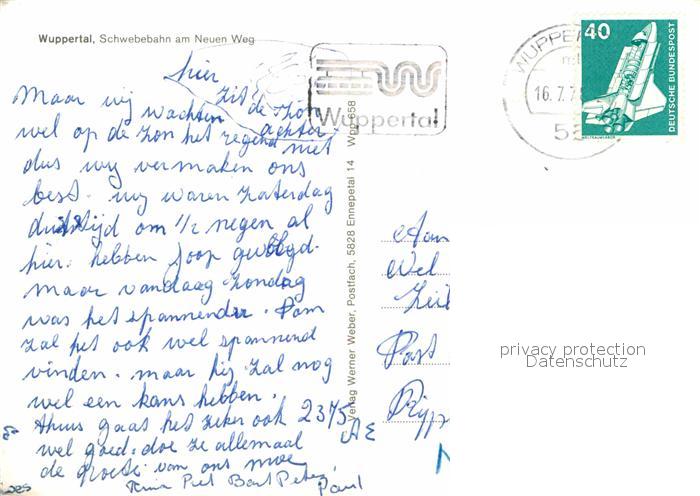 Wuppertal, Schwebebahn am Neuen Weg
hier zit de zon
achter
Maar wij wachten
wel op de zon het regend niet
dus wij vermaken ons
best. wij waren zaterdag
tijd om 1/2 negen al
hier. hebben Joop gevolgd.
maar vandaag zondag
was het spannender. Pom
zal het ook wel spannend
vinden. maar hij zal nog
wel een kans hebben.
thuis gaat het zeker ook
wel goed. doe ze allemaal
de groeten van ons moe
Piet Bart Peter
Paul
Wuppertal
WUPPER
16.7.7
5
40
DEUTSCHE BUNDESPOST
WELTRAUMLABOR
Verlag Werner Weber, Postfach, 5828 Ennepetal 14 Wpg 658
Aan
Wel
Zeil
Post
Rijp
2375
AE
privacy protection
Datenschutz